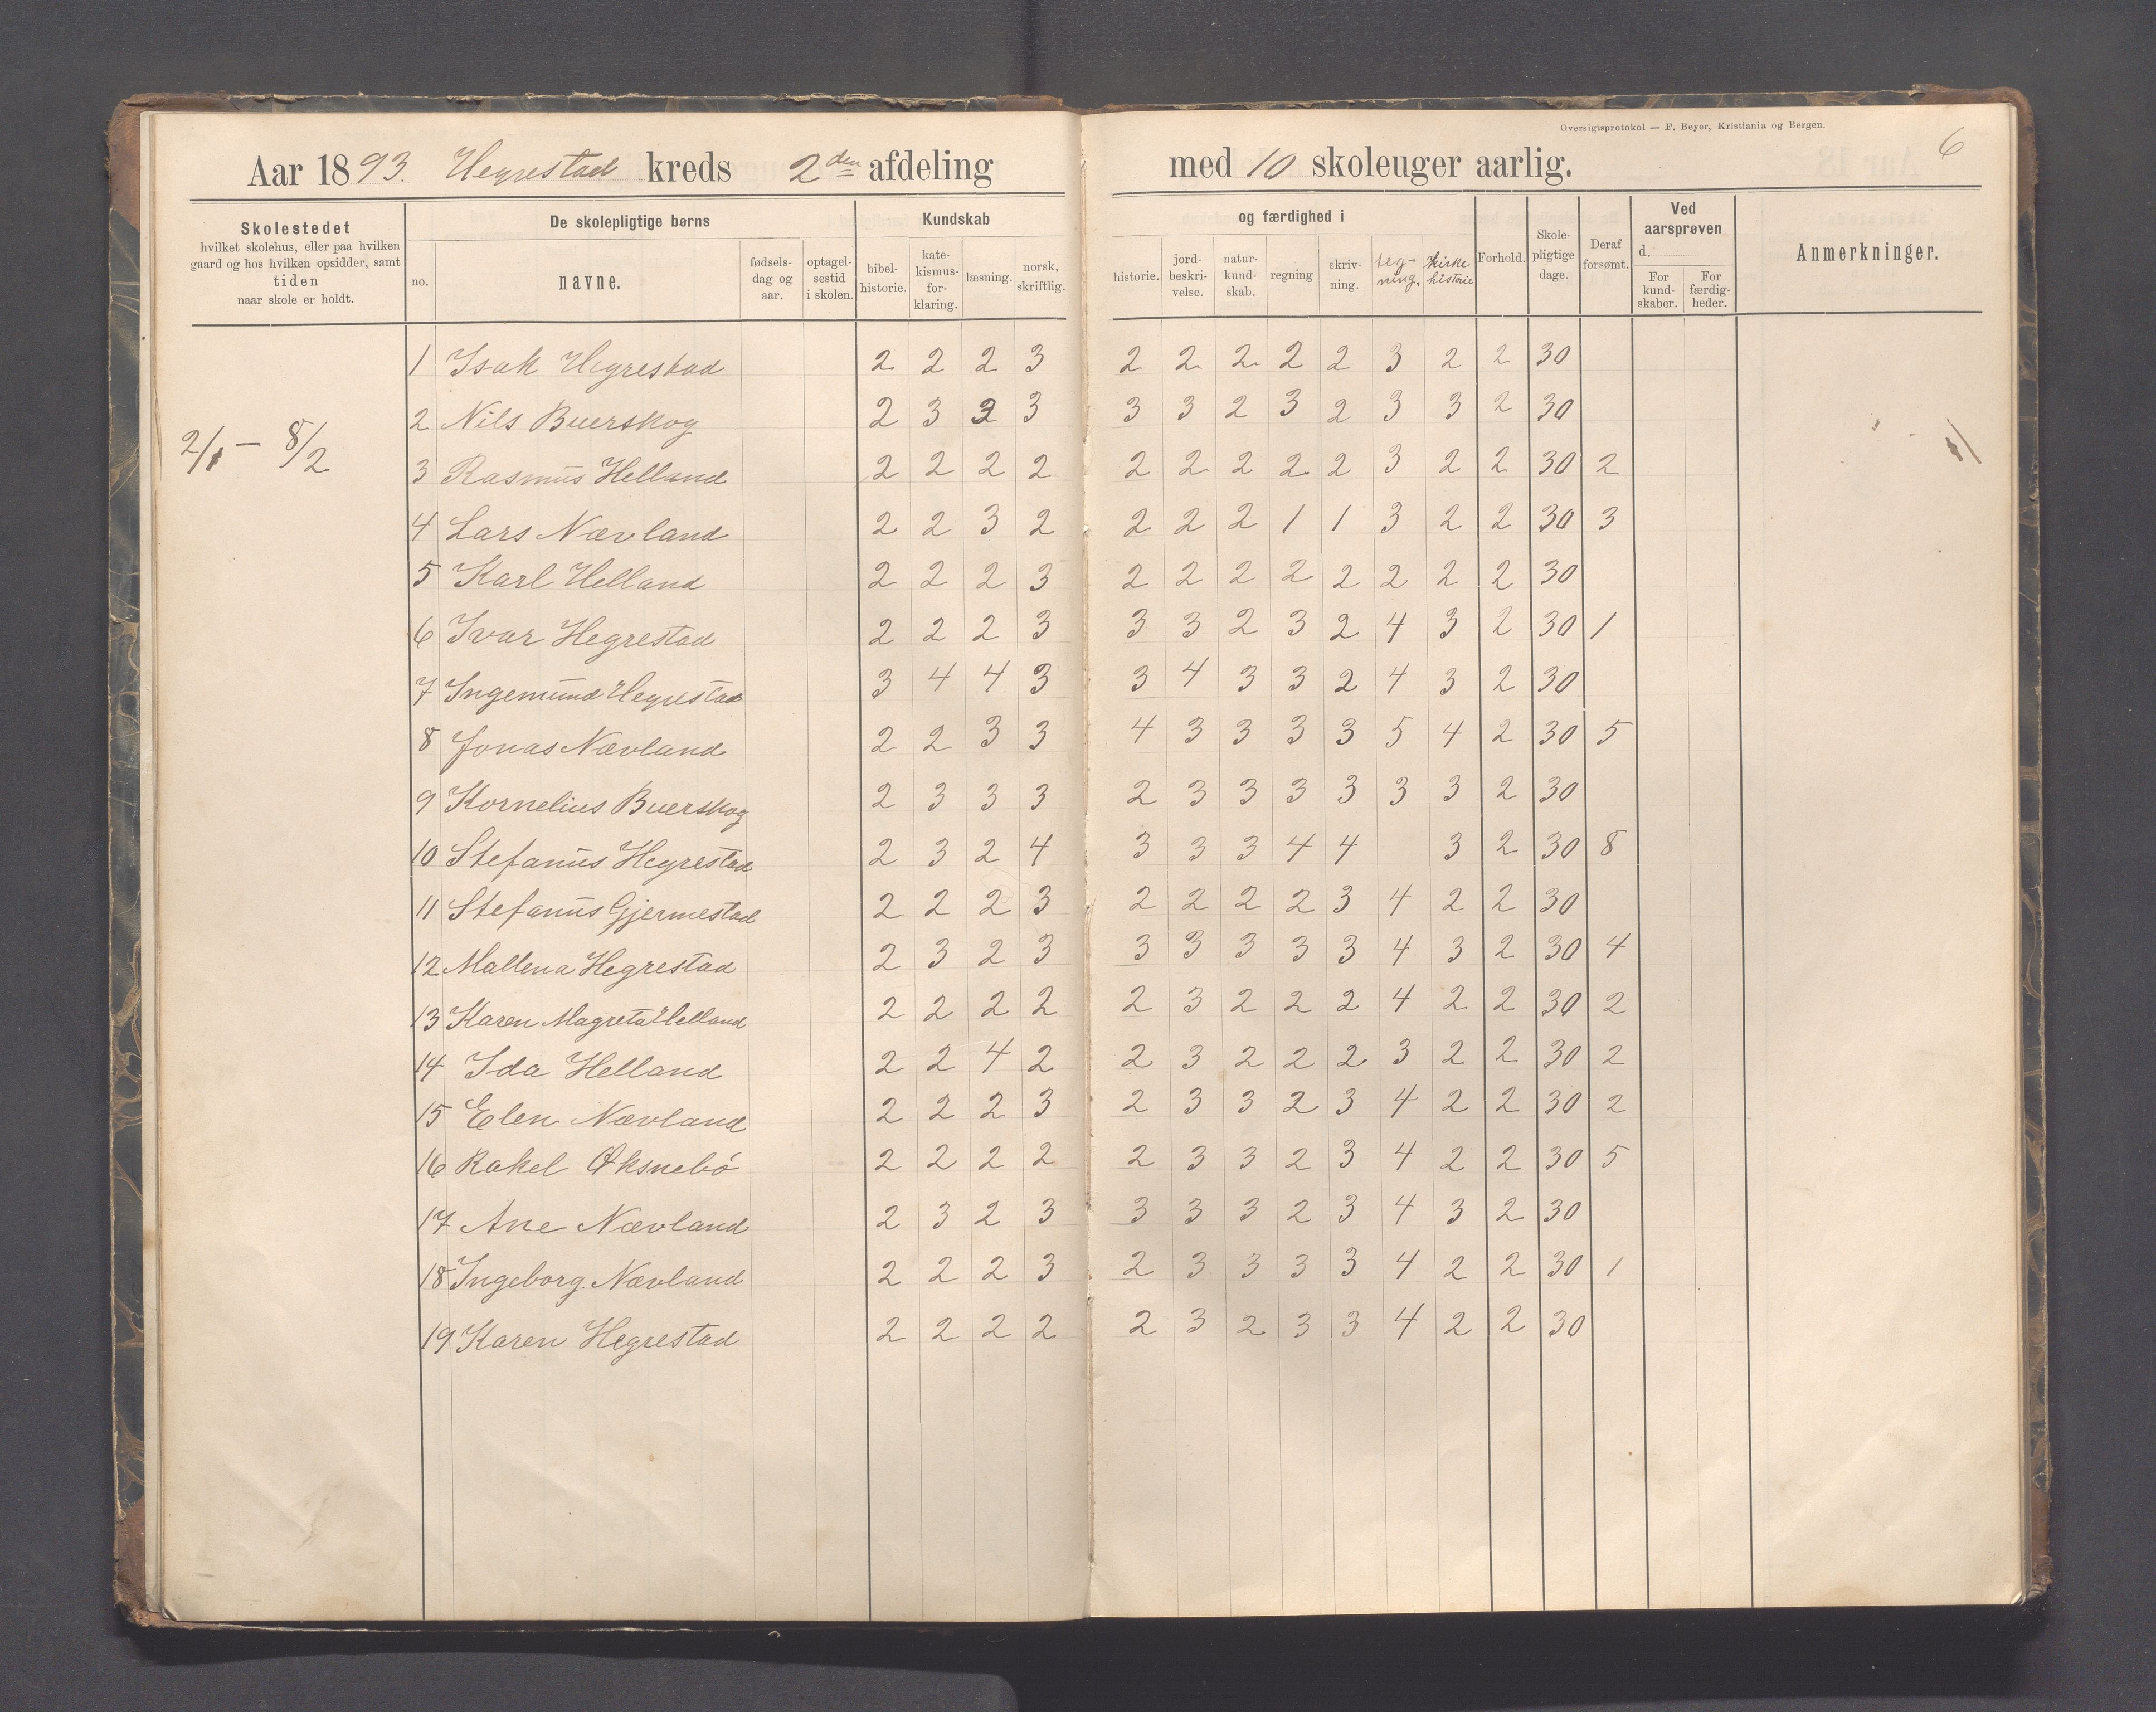 Oversigtsprotokol — F. Beyer, Kristiania og Bergen.
6
Aar 1893. Hegrestad kreds 2den afdeling med 10 skoleuger aarlig.
Skolestedet
hvilket skolehus, eller paa hvilken
gaard og hos hvilken opsidder, samt
tiden
naar skole er holdt.
De skolepligtige børns
no.
navne.
fødsels-
dag og
aar.
optagel-
sestid
i skolen.
Kundskab
bibel-
historie.
kate-
kismus-
for-
klaring.
læsning.
norsk,
skriftlig.
og færdighed i
historie.
jord-
beskri-
velse.
natur-
kund-
skab.
regning
skriv-
ning.
teg-
ning.
kirke
historie
Forhold.
Skole-
pligtige
dage.
Deraf
forsømt.
Ved
aarsprøven
d.
For
kund-
skaber.
For
færdig-
heder.
Anmerkninger.
2/1 — 8/2
1 Isak Hegrestad 2 2 2 3 2 2 2 2 2 3 2 2 30
2 Nils Buerskog 2 3 3 3 3 3 2 3 2 3 3 2 30
3 Rasmus Helland 2 2 2 2 2 2 2 2 2 3 2 2 30 2
4 Lars Nævland 2 2 3 2 2 2 2 1 1 3 2 2 30 3
5 Karl Helland 2 2 2 3 2 2 2 2 2 2 2 2 30
6 Ivar Hegrestad 2 2 2 3 3 3 2 3 2 4 3 2 30 1
7 Ingemund Hegrestad 3 4 4 3 3 4 3 3 2 4 3 2 30
8 Jonas Nævland 2 2 3 3 4 3 3 3 3 5 4 2 30 5
9 Kornelius Buerskog 2 3 3 3 2 3 3 3 3 3 3 2 30
10 Stefanus Hegrestad 2 3 2 4 3 3 3 4 4 3 2 30 8
11 Stefanus Gjermestad 2 2 2 3 2 2 2 2 3 4 2 2 30
12 Mallena Hegrestad 2 3 2 3 3 3 3 3 3 4 3 2 30 4
13 Karen Magreta Helland 2 2 2 2 2 3 2 2 2 4 2 2 30 2
14 Ida Helland 2 2 4 2 2 3 2 2 2 3 2 2 30 2
15 Elen Nævland 2 2 2 3 2 3 3 2 3 4 2 2 30 2
16 Rakel Øksnebø 2 2 2 2 2 3 3 2 3 4 2 2 30 5
17 Ane Nævland 2 3 2 3 3 3 3 2 3 4 3 2 30
18 Ingeborg Nævland 2 2 2 3 2 3 3 3 3 4 2 2 30 1
19 Karen Hegrestad 2 2 2 2 2 3 2 3 3 4 2 2 30